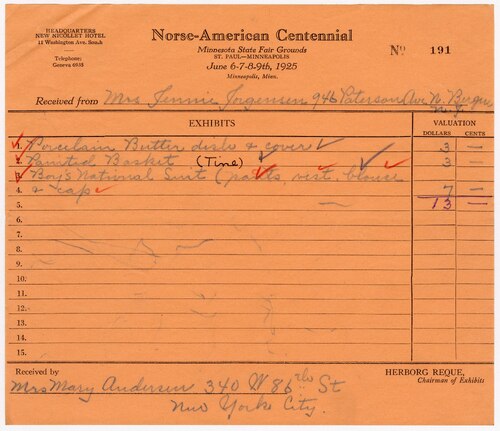 HEADQUARTERS
NEW NICOLLET HOTEL
12 Washington Ave. South
Telephone:
Geneva 6935
Norse-American Centennial
Minnesota State Fair Grounds
ST. PAUL—MINNEAPOLIS
June 6-7-8-9th, 1925
Minneapolis, Minn.
No 191
Received from Mrs Jennie Jorgensen 946 Paterson Ave N. Bergen
N. J.
EXHIBITS VALUATION
DOLLARS CTS.
1. Porcelain Butter dish & cover 3 —
2. Painted Basket (Tine) 3 —
3. Boy's National Suit (pants, vest, blouse
4. & cap 7 —
5. 13 —
6.
7.
8.
9.
10.
11.
12.
13.
14.
15.
Received by
HERBORG REQUE,
Chairman of Exhibits
Mrs Mary Andersen 340 W 86 St
New York City.